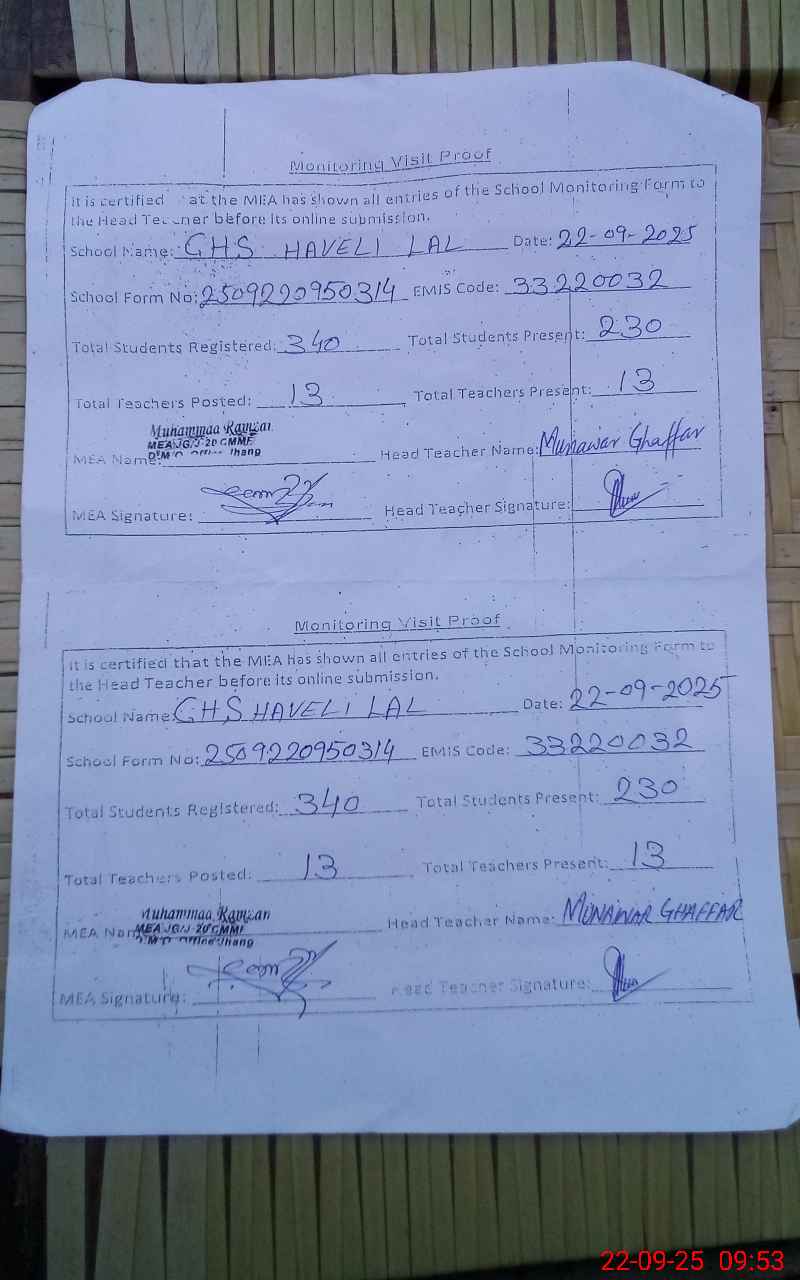 Monitoring Visit Proof
It is certified at the MEA has shown all entries of the School Monitoring Form to
the Head Teacher before its online submission.
School Name: GHS HAVELI LAL Date: 22-09-2025
School Form No: 2509220950314 EMIS Code: 33220032
Total Students Registered: 340 Total Students Present: 230
Total Teachers Posted: 13 Total Teachers Present: 13
Muhammad Ramzan
MEA
MEA Name: Head Teacher Name: Munawar Ghaffar
MEA Signature: Head Teacher Signature:
Monitoring Visit Proof
It is certified that the MEA has shown all entries of the School Monitoring Form to
the Head Teacher before its online submission.
School Name: GHS HAVELI LAL Date: 22-09-2025
School Form No: 2509220950314 EMIS Code: 33220032
Total Students Registered: 340 Total Students Present: 230
Total Teachers Posted: 13 Total Teachers Present: 13
Muhammad Ramzan
MEA Name: Head Teacher Name: MUNAWAR GHAFFAR
MEA Signature: Head Teacher Signature:
22-09-25 09:53